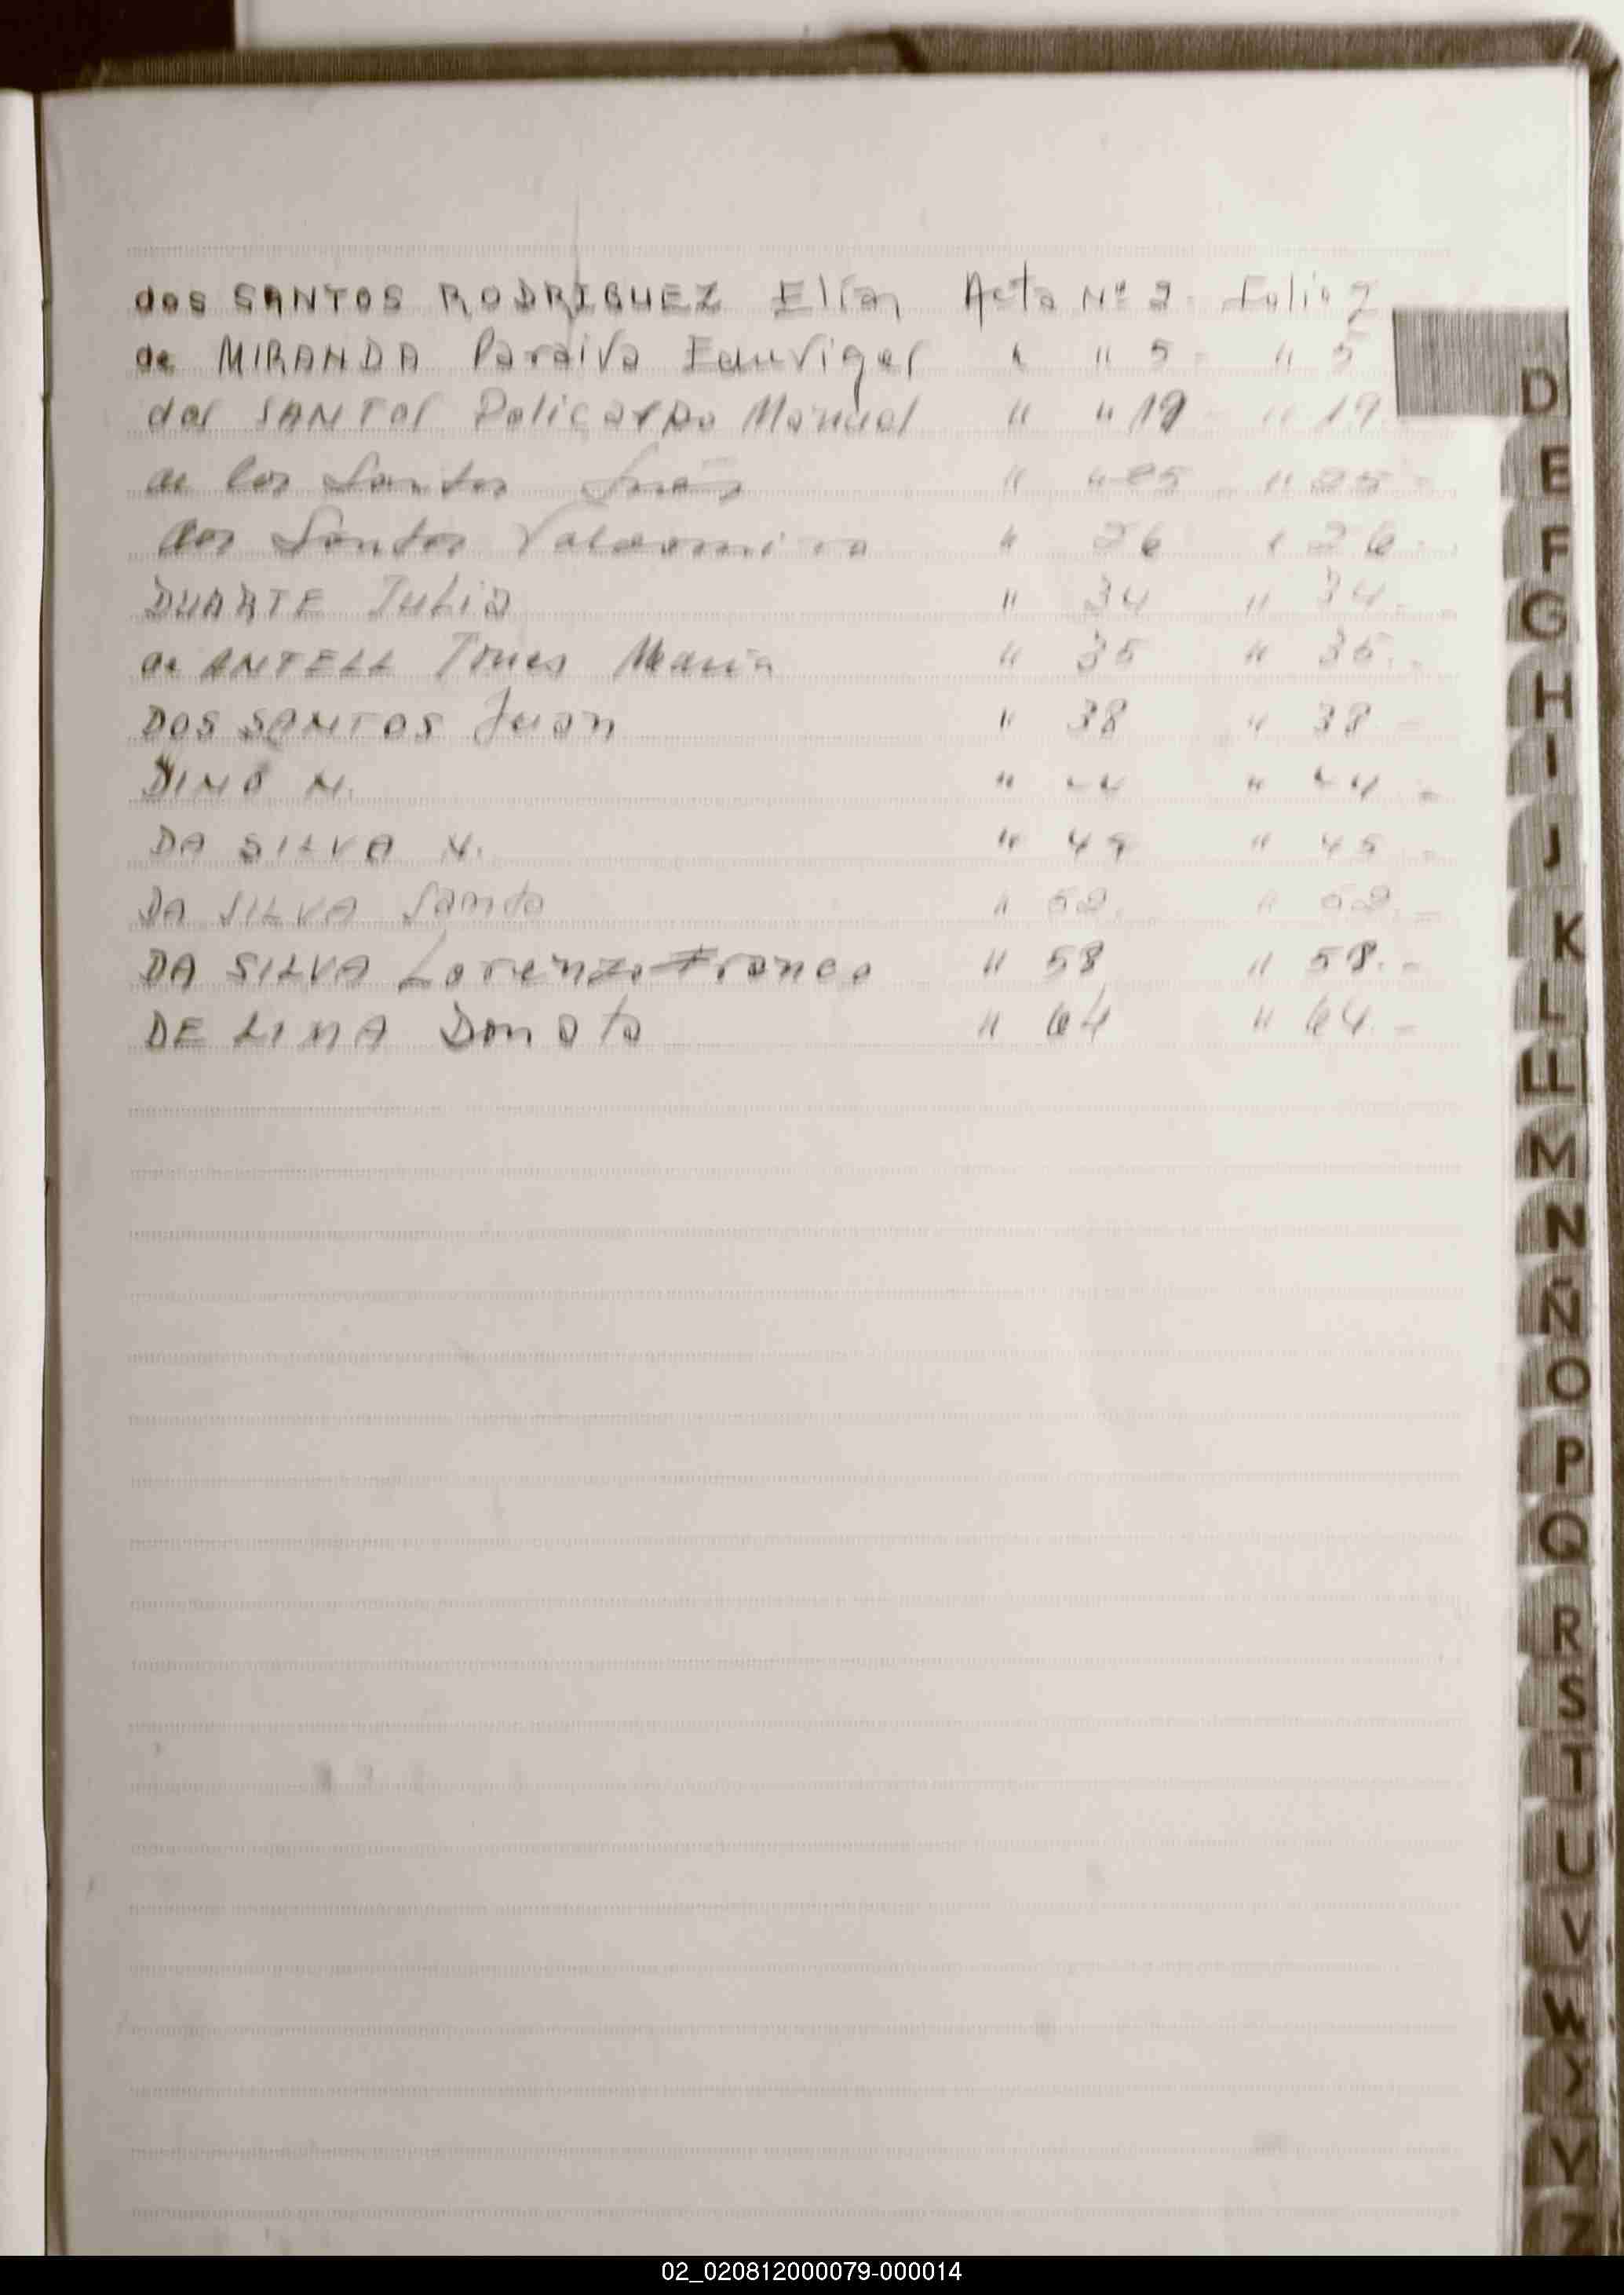 dos SANTOS RODRIGUEZ Elías Acta Nº 2. Folio 2
de MIRANDA Paraiva Eduviges " " 5 - " 5
dos SANTOS Policarpo Manuel " " 19 - " 19.
de los Santos " " 25 - " 25 -
dos Santos Valdomiro " 26 " 26.
DUARTE Julia " 34 " 34. -
de ANTELL María " 35 " 35. -
DOS SANTOS Juan " 38 " 38 -
DINO N. " 44 " 44 -
DA SILVA N. " 45 " 45 -
DA SILVA Santa " 52. " 52. -
DA SILVA Lorenzo Franco " 58 " 58. -
DE LIMA Donato " 64 " 64. -
D
E
F
G
H
I
J
K
L
LL
M
N
Ñ
O
P
Q
R
S
T
U
V
W
X
Y
Z
02_020812000079-000014